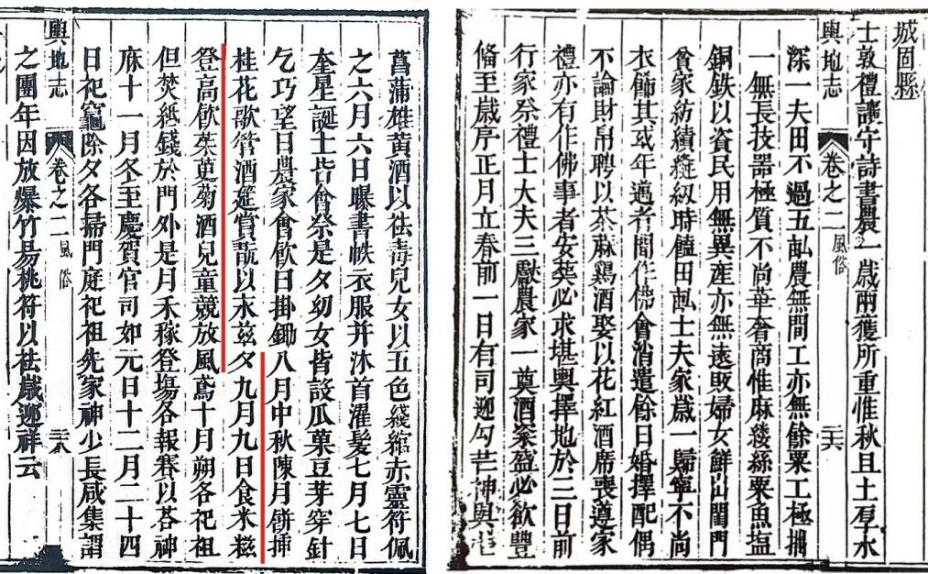 城固縣
士敦禮讓守詩書農一歲兩獲所重惟秋且土厚水
輿地志 卷之二 風俗
深一夫田不過五畝農無間工亦無餘粟工極拙
一無長技器極質不尚華奢商惟麻縷絲粟魚塩
銅鉄以資民用無異産亦無遠敗婦女鮮出閨門
貧家紡績縫紉時饁田畝士夫家歲一歸寧不尚
衣飾其或年邁者間作佛會消遣餘日婚擇配偶
不論財帛聘以茶麻鷄酒娶以花紅酒席喪遵家
禮亦有作佛事者安葬必求堪輿擇地於三日前
行家祭禮士大夫三獻農家一奠酒粢盛必欲豊
脩至歲序正月立春前一日有司迎勾芒神與
菖蒲雄黃酒以祛毒兒女以五色綫綰赤靈符佩
之六月六日曝書帙衣服并沐首濯髮七月七日
奎星誕士皆會祭是夕幼女皆設瓜菓豆芽穿針
乞巧望日農家會飲日掛鋤八月中秋陳月餅插
桂花歌管酒筵賞翫以永兹夕九月九日食米糍
登高飲茱萸菊酒兒童競放風鳶十月朔各祀祖
但焚紙錢於門外是月禾稼登塲各報賽以荅神
庥十一月冬至慶賀官司如元日十二月二十四
日祀竈除夕各掃門庭祀祖先家神少長咸集謂
輿地志 卷之二 風俗
之團年因放爆竹易桃符以祛歲迎祥云